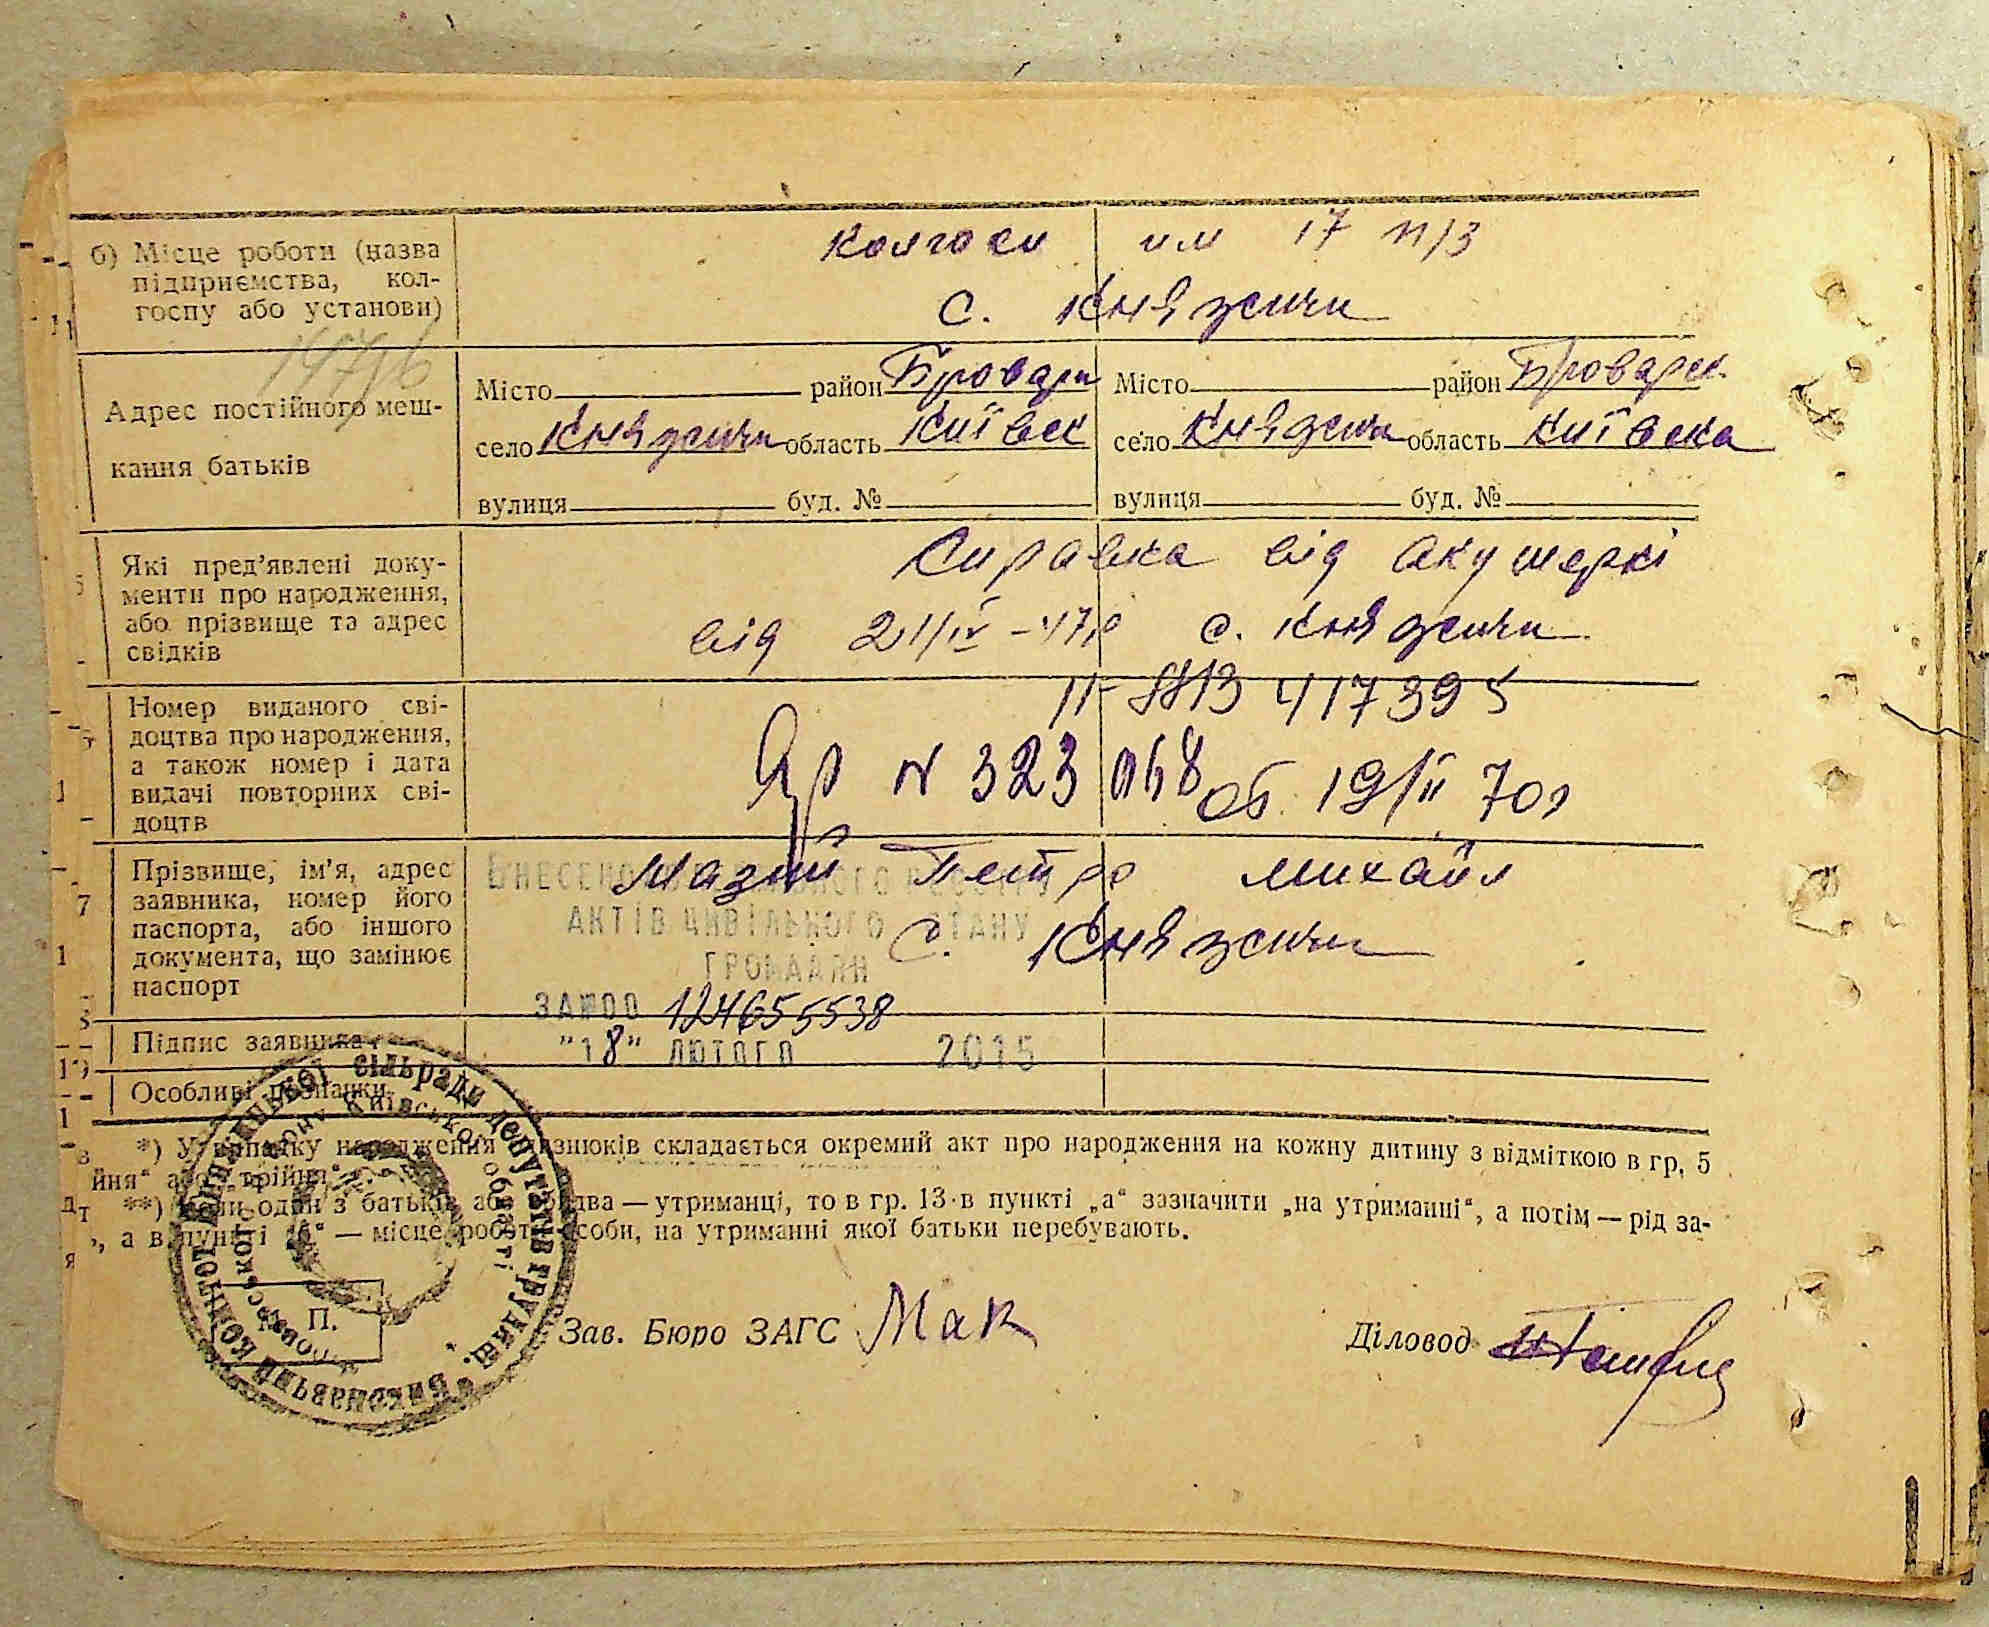 б) Місце роботи (назва підприємства, колгоспу або установи)
колгосп им 17 п/з
с. Княжичи
Адрес постійного мешкання батьків
Місто район Бровари Місто район Броварск.
село Княжичи область Київск село Княжичи область Київска
вулиця буд. № вулиця буд. №
Які пред'явлені документи про народження, або прізвище та адрес свідків
Справка від акушеркі
від 21/IV-47р с. Княжичи
Номер виданого свідоцтва про народження, а також номер і дата видачі повторних свідоцтв
417395
N 323068 от 19/II 70г
Прізвище, ім'я, адрес заявника, номер його паспорта, або іншого документа, що замінює паспорт
Мазий Петро Михайл
с. Княжичи
ВНЕСЕНО
АКТІВ ЦИВІЛЬНОГО СТАНУ
ГРОМАДЯН
ЗА №00 124655538
"18" ЛЮТОГО 2015
Підпис заявника
Особливі позначки
*) У випадку народження близнюків складається окремий акт про народження на кожну дитину з відміткою в гр. 5
йня" або „трійня".
**) Коли один з батьків або обидва — утриманці, то в гр. 13 в пункті „а" зазначити „на утриманні", а потім — рід за-
, а в пункті „б" — місце роботи особи, на утриманні якої батьки перебувають.
П.
Зав. Бюро ЗАГС Мак
Діловод
Виконавчий комітет сільради депутатів трудящ.
Броварського району Київської області